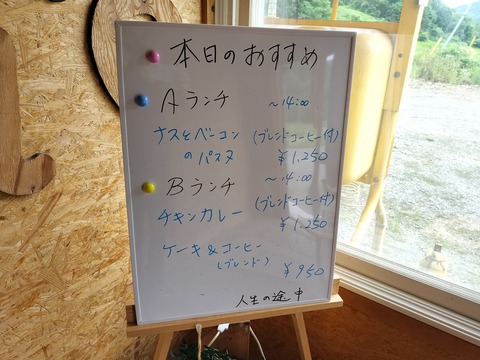 本日のおすすめ
Aランチ ～14:00
ナスとベーコン (ブレンドコーヒー付)
のパスタ ¥1,250
Bランチ ～14:00
チキンカレー (ブレンドコーヒー付)
¥1,250
ケーキ&コーヒー
(ブレンド) ¥950
人生の途中